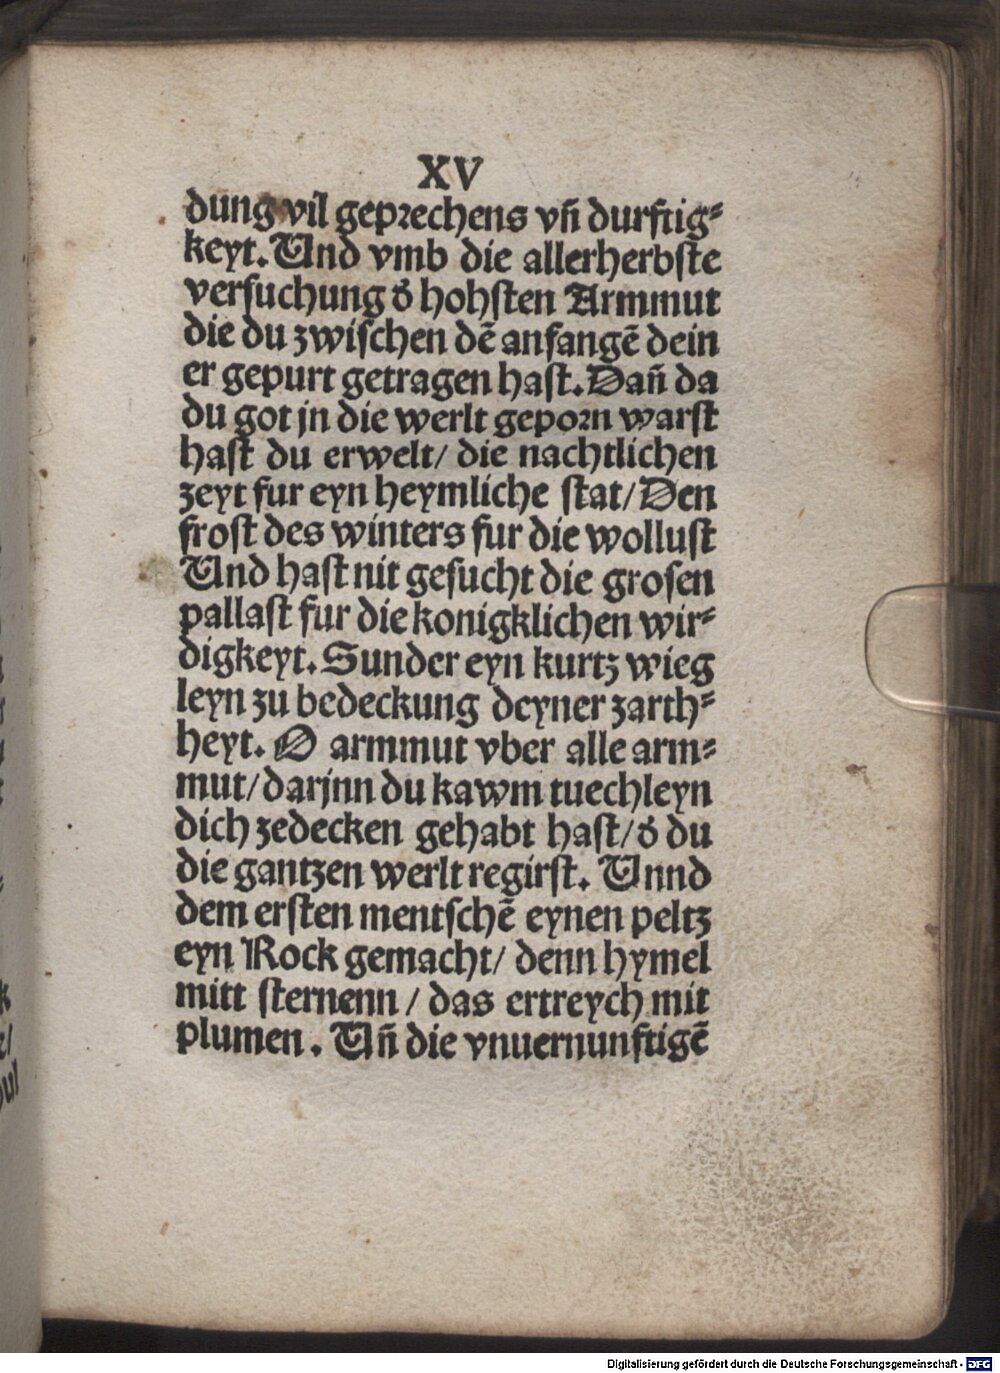 XV
dung vil geprechens vn̄ durftig⸗
keyt. Und vmb die allerherbste
versuchung d̕ hohsten Armmut
die du zwischen dē anfangē dein
er gepurt getragen hast. Dan̄ da
du got jn die werlt geporn warst
hast du erwelt/ die nachtlichen
zeyt fur eyn heymliche stat/ Den
frost des winters fur die wollust
Und hast nit gesucht die grosen
pallast fur die konigklichen wir⸗
digkeyt. Sunder eyn kurtz wieg
leyn zu bedeckung deyner zarth⸗
heyt. O armmut vber alle arm⸗
mut/ darjnn du kawm tuechleyn
dich zedecken gehabt hast/ d̕ du
die gantzen werlt regirst. Unnd
dem ersten mentschē eynen peltz
eyn Rock gemacht/ denn hymel
mitt sternenn / das ertreych mit
plumen. Un̄ die vnuernunftigē
Digitalisierung gefördert durch die Deutsche Forschungsgemeinschaft - DFG